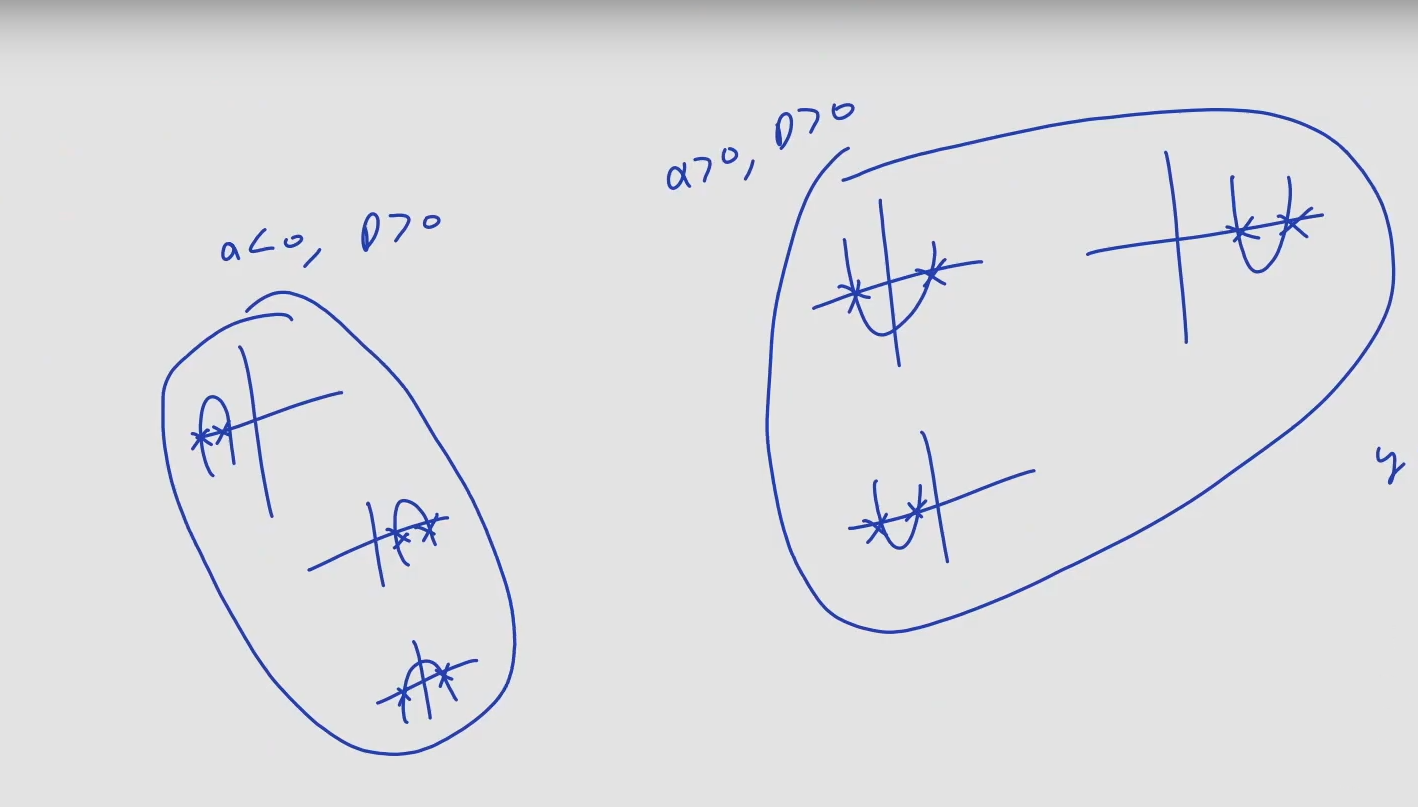 a<0, D>0
a>0, D>0
y